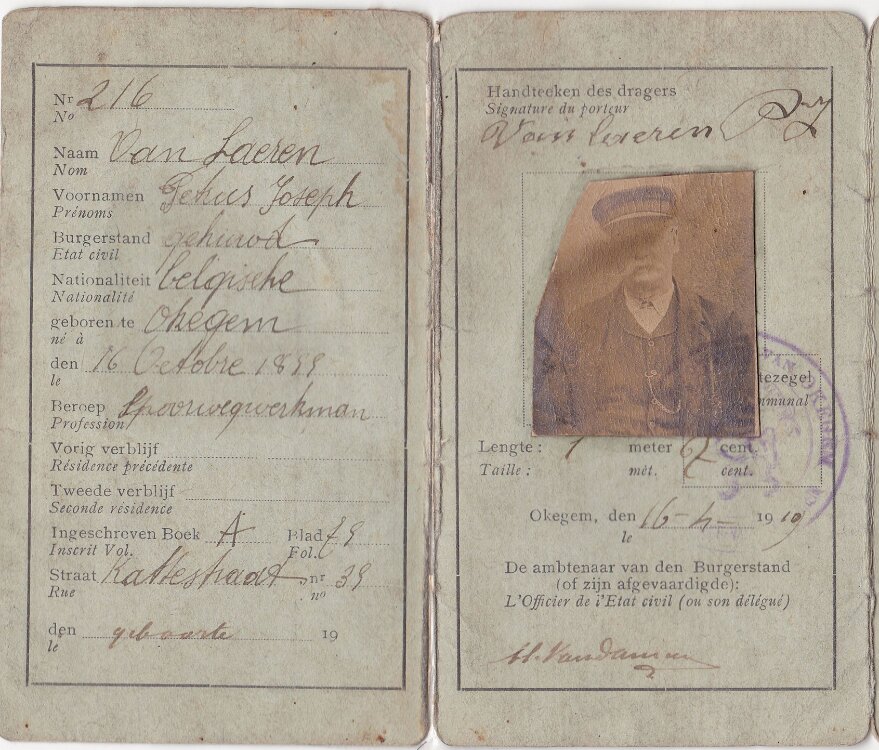 Nr 216
No
Naam Van Laeren
Nom
Voornamen Joseph
Prénoms
Burgerstand gehuwd
Etat civil
Nationaliteit belgische
Nationalité
geboren te Okegem
né à
den 16 Octobre
le
Beroep Spoorwegwerkman
Profession
Vorig verblijf
Résidence précédente
Tweede verblijf
Seconde résidence
Ingeschreven Boek A Blad
Inscrit Vol. Fol.
Straat Kattestraat nr 39
Rue no
den geboorte 19
le
Handteeken des dragers
Signature du porteur
Van Laeren
VAN OKEGEM
tezegel
mmunal
Lengte : 1 meter cent.
Taille : mèt. cent.
Okegem, den 16-4- 1919
le
De ambtenaar van den Burgerstand
(of zijn afgevaardigde):
L'Officier de l'Etat civil (ou son délégué)